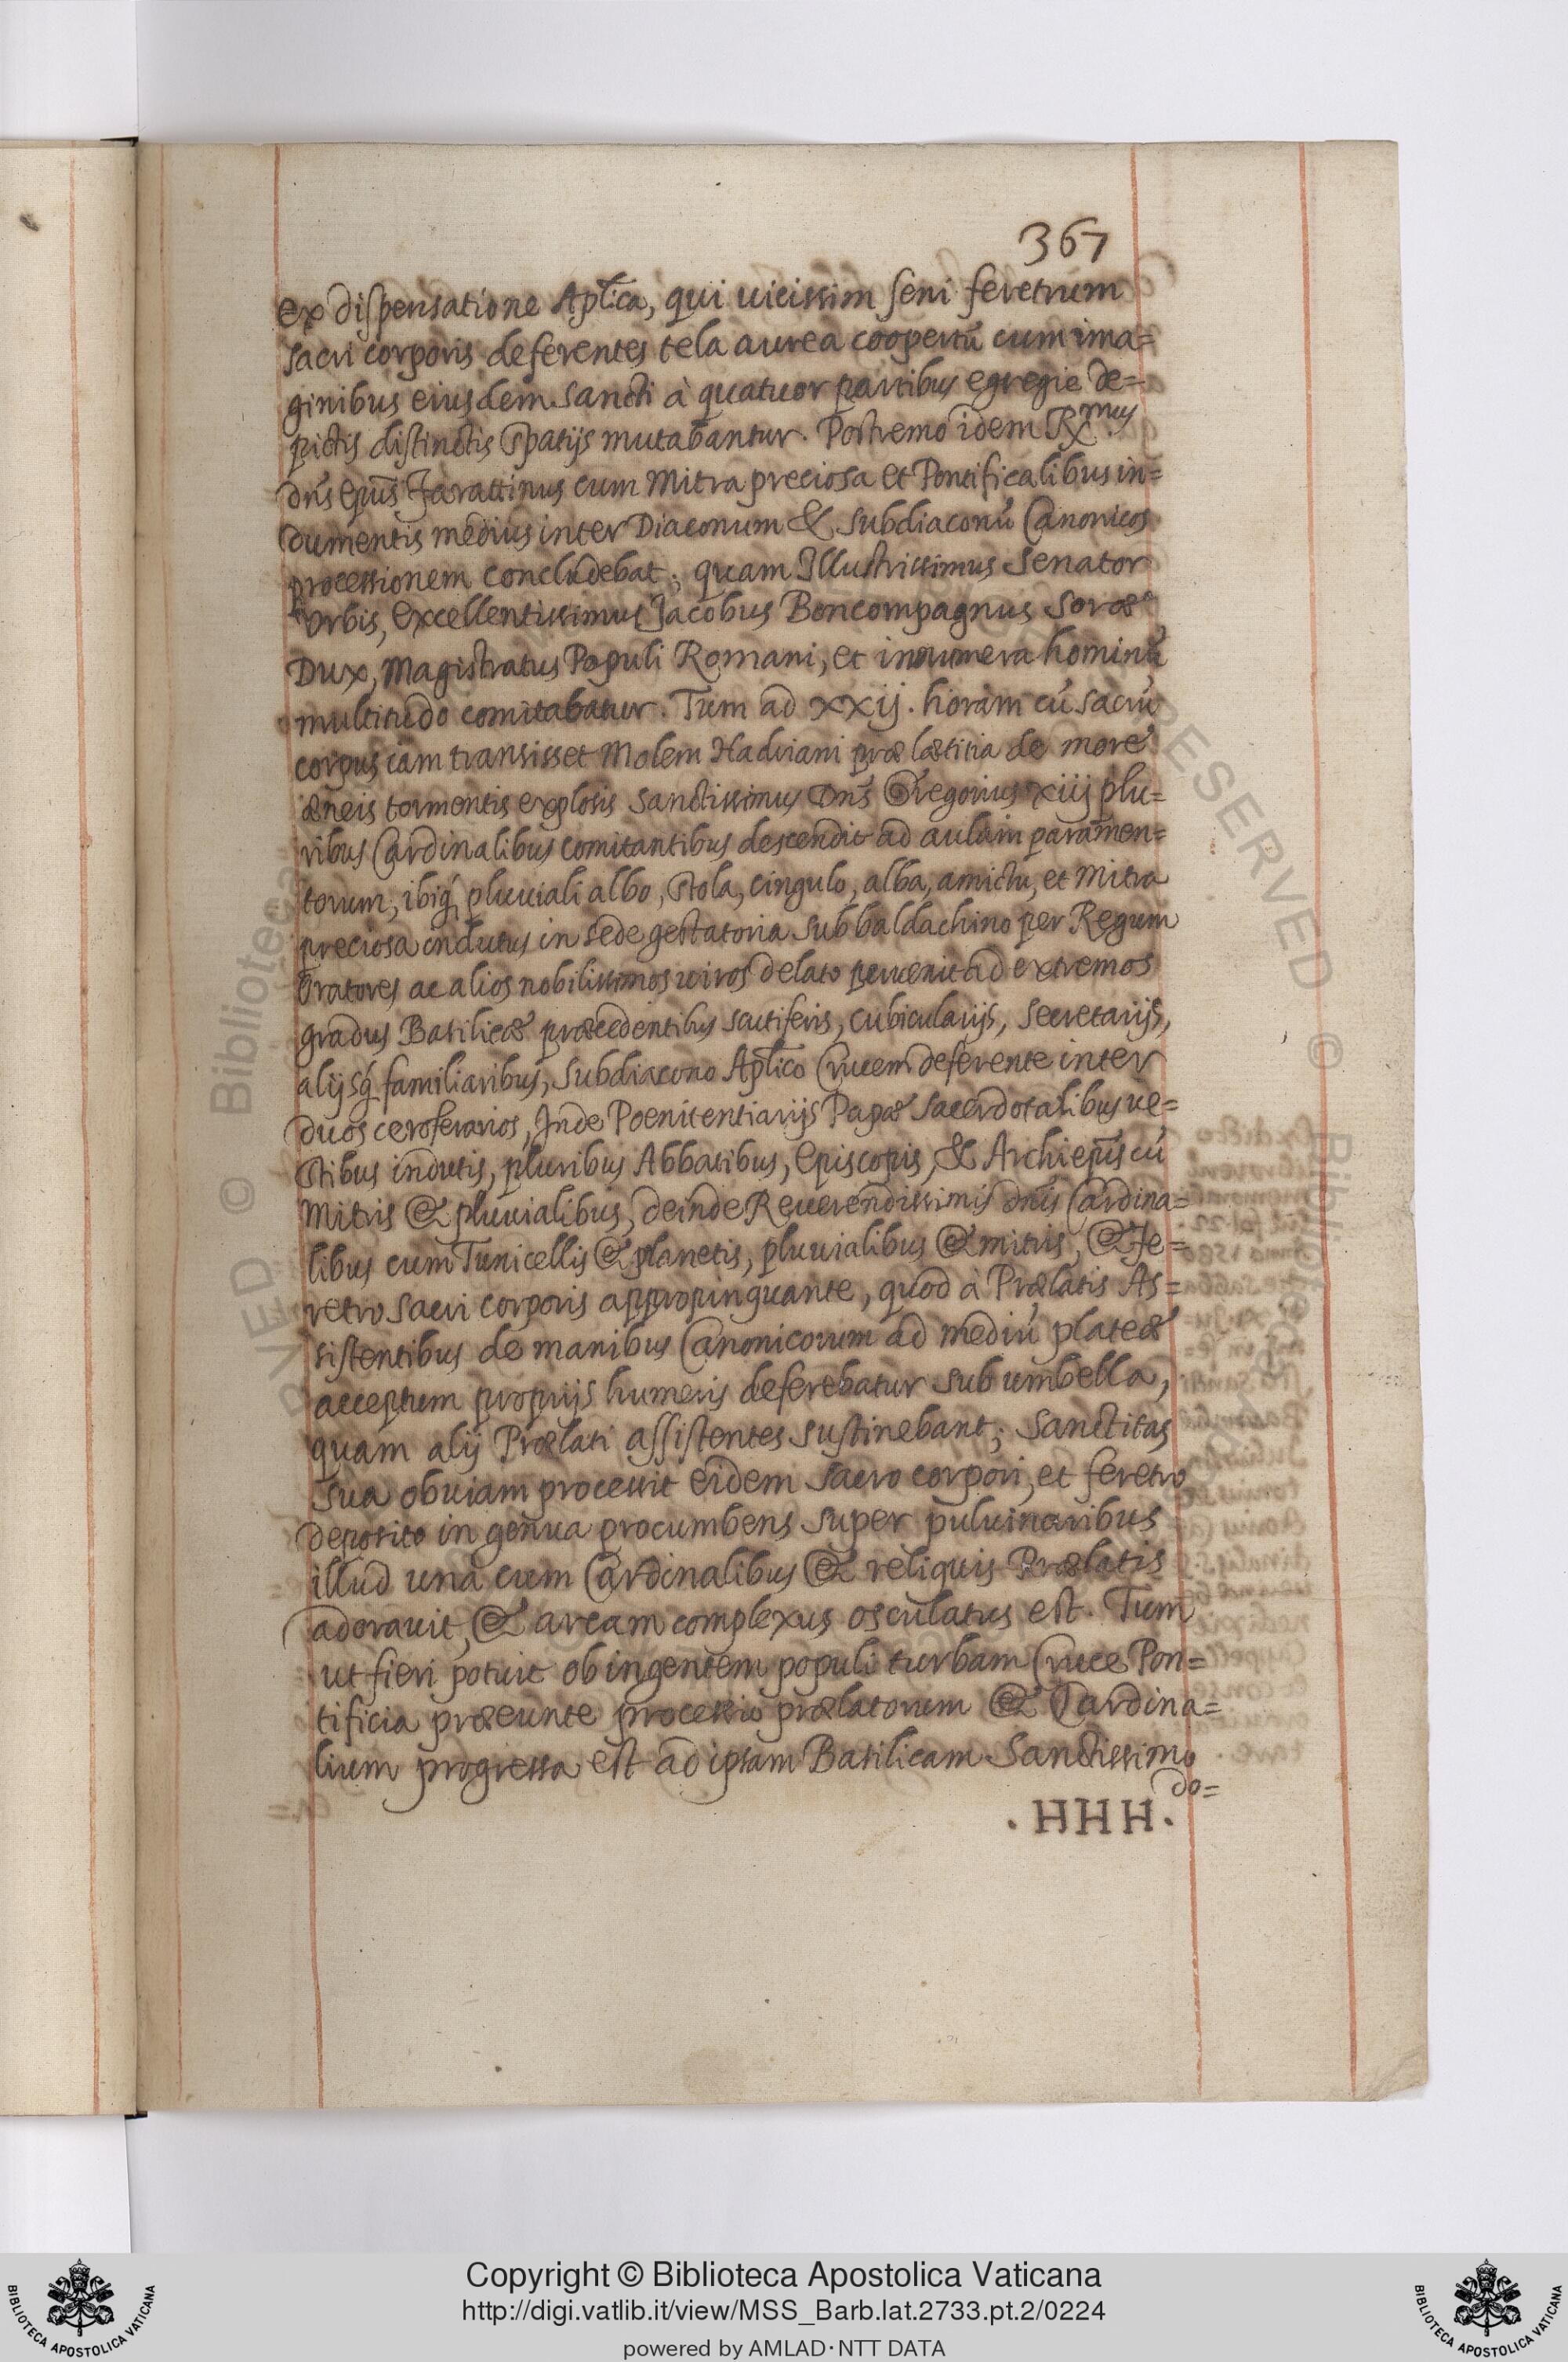 367
ex dispensatione Aplica, qui uicissim seni feretrum
sacri corporis deferentes tela aurea coopertũ cum ima=
ginibus eiusdem sancti à quatuor partibus egregie de=
pictis distinctis spatijs mutabantur. Postremo idem Rmus
dñs Epũs Jarattinus cum Mitra preciosa et Pontificalibus in=
dumentis medius inter Diaconum & subdiaconũ Canonicos
processionem concludebat; quam Illustrissimus Senator
Vrbis, excellentissimus Jacobus Boncompagnus Soræ
Dux, Magistratus Populi Romani, et innumera hominũ
multitudo comitabatur. Tum ad xxij. horam cũ sacrũ
corpus iam transisset Molem Hadriani præ lætitia de more
æneis tormentis explosis sanctissimus Dñs Gregorius xiij plu=
ribus Cardinalibus comitantibus descendit ad aulam paramen=
torum, ibiq́; pluuiali albo, stola, cingulo, alba, amictu, et Mitra
preciosa indutus in sede gestatoria sub baldachino per Regum
oratores ac alios nobilissimos uiros delato peruenit ad extremos
gradus Basilicæ præcedentibus scutiferis, cubicularijs, secretarijs,
alijsq́; familiaribus, Subdiacono Aplico Crucem deferente inter
duos ceroferarios, Inde Poenitentiarijs Papæ sacerdotalibus ue=
stibus indutis, pluribus Abbatibus, Episcopis, & Archiepũs cũ
Mitris & pluuialibus, deinde Reuerendissimis dnis Cardina=
libus cum Tunicellis & planetis, pluuialibus & mitris, & fe=
retro sacri corporis appropinquante, quod à Prælatis As=
sistentibus de manibus Canonicorum ad mediũ plateæ
acceptum proprijs humeris deferebatur sub umbella,
quam alij Prælati assistentes sustinebant; Sanctitas
sua obuiam processit eidem sacro corpori, et feretro
deposito in genua procumbens super puluinaribus
illud unà cum Cardinalibus & reliquis Prælatis
adorauit, & arcam complexus osculatus est. Tum
ut fieri potuit ob ingentem populi turbam Cruce Pon=
tificia præeunte processio prælatorum & Cardina=
lium progressa est ad ipsam Basilicam Sanctissimo
do=
. HHH.
Copyright © Biblioteca Apostolica Vaticana
http://digi.vatlib.it/view/MSS_Barb.lat.2733.pt.2/0224
powered by AMLAD · NTT DATA
BIBLIOTECA APOSTOLICA VATICANA
BIBLIOTECA APOSTOLICA VATICANA